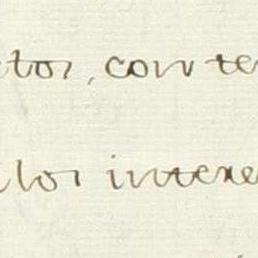 tor, con te
lor intere